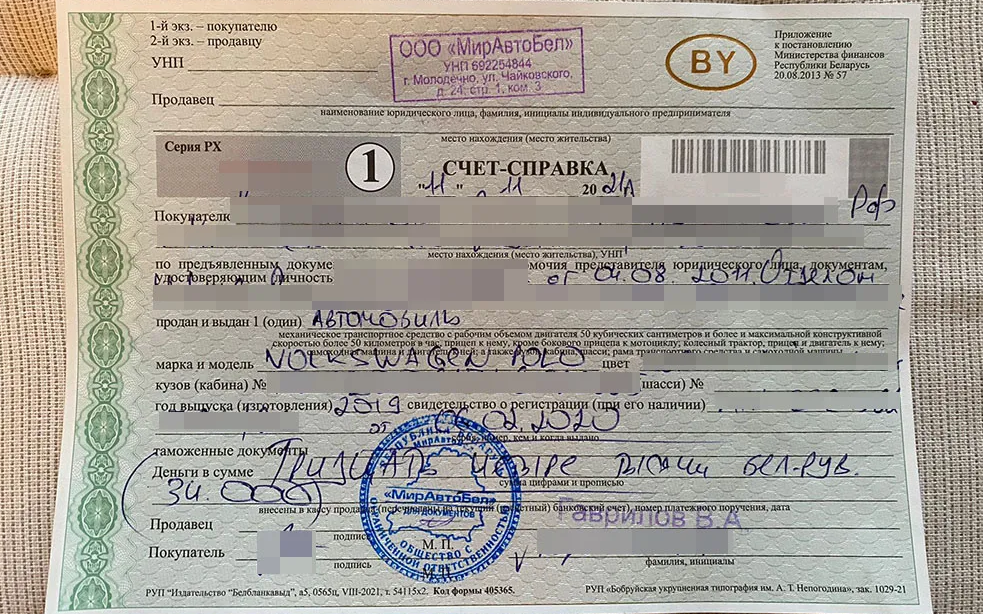 1-й экз. – покупателю
2-й экз. – продавцу
УНП
ООО «МирАвтоБел»
УНП 692254844
г. Молодечно, ул. Чайковского,
д. 24, стр. 1, ком. 3
BY
Приложение
к постановлению
Министерства финансов
Республики Беларусь
20.08.2013 № 57
Продавец
наименование юридического лица, фамилия, инициалы индивидуального предпринимателя
место нахождения (место жительства)
Серия РХ
1
СЧЕТ-СПРАВКА
"11" 11 2021
Покупатель
РФ
место нахождения (место жительства), УНП
по предъявленным докуме мочия представителя юридического лица, документам,
удостоверяющим личность от 04.08. 2011
продан и выдан 1 (один) АВТОМОБИЛЬ
механическое транспортное средство с рабочим объемом двигателя 50 кубических сантиметров и более и максимальной конструктивной
скоростью более 50 километров в час, прицеп к нему, кроме бокового прицепа к мотоциклу; колесный трактор, прицеп и двигатель к нему;
марка и модель VOLKSWAGEN POLO цвет
кузов (кабина) № шасси) №
год выпуска (изготовления) 2019 свидетельство о регистрации (при его наличии)
от 06.02.2020
номер, кем и когда выдано
таможенные документы
Деньги в сумме Тридцать четыре тысячи бел. руб.
сумма цифрами и прописью
34.000
внесены в кассу продавца (перечислены на текущий (расчетный) банковский счет), номер платежного поручения, дата
Продавец
Гаврилов В.А
подпись
Покупатель
М. П.
подпись
фамилия, инициалы
РЕСПУБЛИКА БЕЛАРУСЬ
«МирАвтоБел»
ДЛЯ ДОКУМЕНТОВ
ОБЩЕСТВО С ОГРАНИЧЕННОЙ ОТВЕТСТВЕННОСТЬЮ
РУП "Издательство "Белбланкавыд", а5, 0565ц, VIII-2021, т. 54115x2. Код формы 405365.
РУП «Бобруйская укрупненная типография им. А. Т. Непогодина», зак. 1029-21